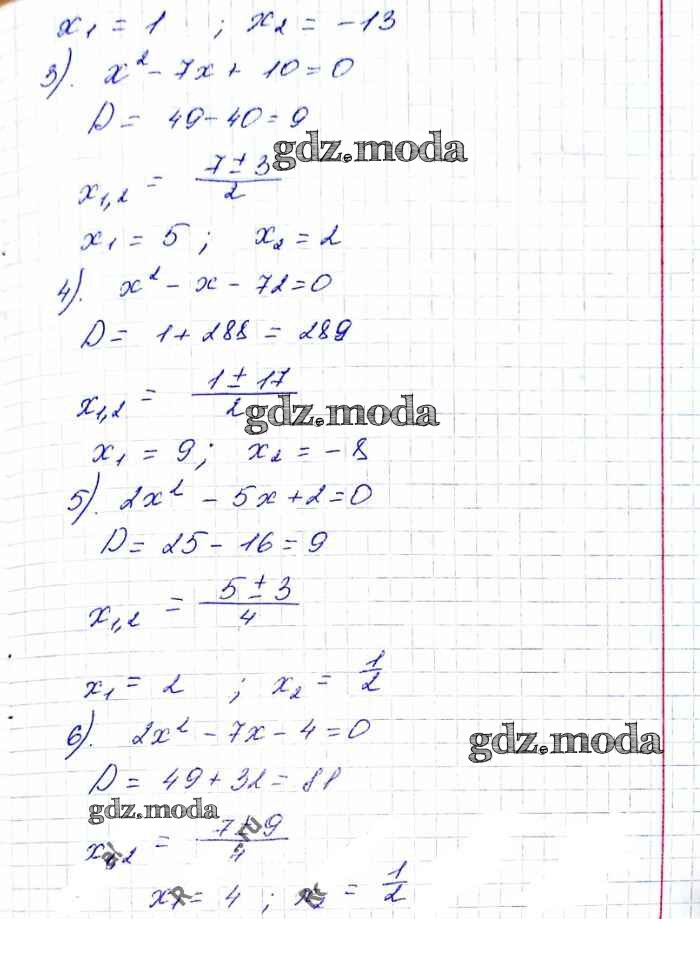 x₁ = 1 ; x₂ = -13
3). x² - 7x + 10 = 0
D = 49 - 40 = 9
gdz.moda
x₁,₂ = (7 ± 3)/2
x₁ = 5 ; x₂ = 2
4). x² - x - 72 = 0
D = 1 + 288 = 289
x₁,₂ = (1 ± 17)/2
gdz.moda
x₁ = 9 ; x₂ = -8
5). 2x² - 5x + 2 = 0
D = 25 - 16 = 9
x₁,₂ = (5 ± 3)/4
x₁ = 2 ; x₂ = 1/2
6). 2x² - 7x - 4 = 0
gdz.moda
D = 49 + 32 = 81
gdz.moda
x₁,₂ = (7 ± 9)/4
x₁ = 4 ; x₂ = 1/2